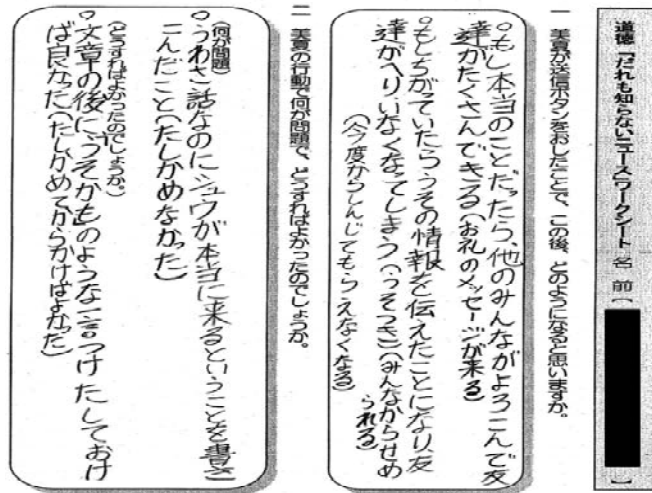 道徳「だれも知らないニュース」ワークシート 名 前( )
一 美夏が送信ボタンをおしたことで、この後、どのようになると思いますか。
○もし本当のことだったら、他のみんながよろこんで友
達がたくさんできる(お礼のメッセージが来る)
○もしちがていたらうその情報を伝えたことになり、友
達がへり、いなくなってしまう(うそつき)(みんなからせめ
られる)
(今度からしんじてもらえなくなる)
二 美夏の行動で何が問題で、どうすればよかったのでしょうか。
(何が問題)
○うわさ話なのにシュウが本当に来るということを書き
こんだこと(たしかめなかった)
(どうすればよかったのでしょうか。)
○文章の後に、うそかものような一言つけたしておけ
ば良かった(たしかめてからかけばよかった)